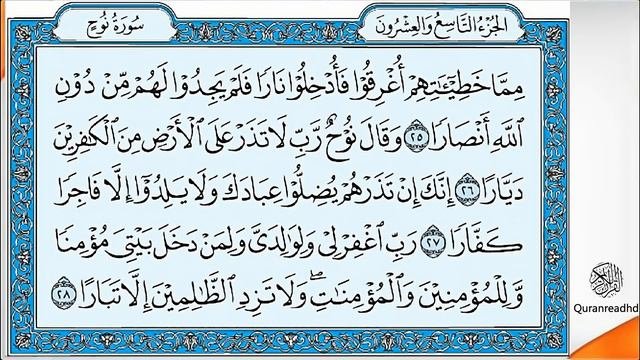 الجزء التاسع والعشرون
سورة نوح
مِّمَّا خَطِيٓـَٰٔتِهِمْ أُغْرِقُوا۟ فَأُدْخِلُوا۟ نَارًا فَلَمْ يَجِدُوا۟ لَهُم مِّن دُونِ
ٱللَّهِ أَنصَارًا ٢٥ وَقَالَ نُوحٌ رَّبِّ لَا تَذَرْ عَلَى ٱلْأَرْضِ مِنَ ٱلْكَٰفِرِينَ
دَيَّارًا ٢٦ إِنَّكَ إِن تَذَرْهُمْ يُضِلُّوا۟ عِبَادَكَ وَلَا يَلِدُوٓا۟ إِلَّا فَاجِرًا
كَفَّارًا ٢٧ رَّبِّ ٱغْفِرْ لِى وَلِوَٰلِدَىَّ وَلِمَن دَخَلَ بَيْتِىَ مُؤْمِنًا
وَلِلْمُؤْمِنِينَ وَٱلْمُؤْمِنَٰتِ ۖ وَلَا تَزِدِ ٱلظَّٰلِمِينَ إِلَّا تَبَارًا ٢٨
Quranreadhd